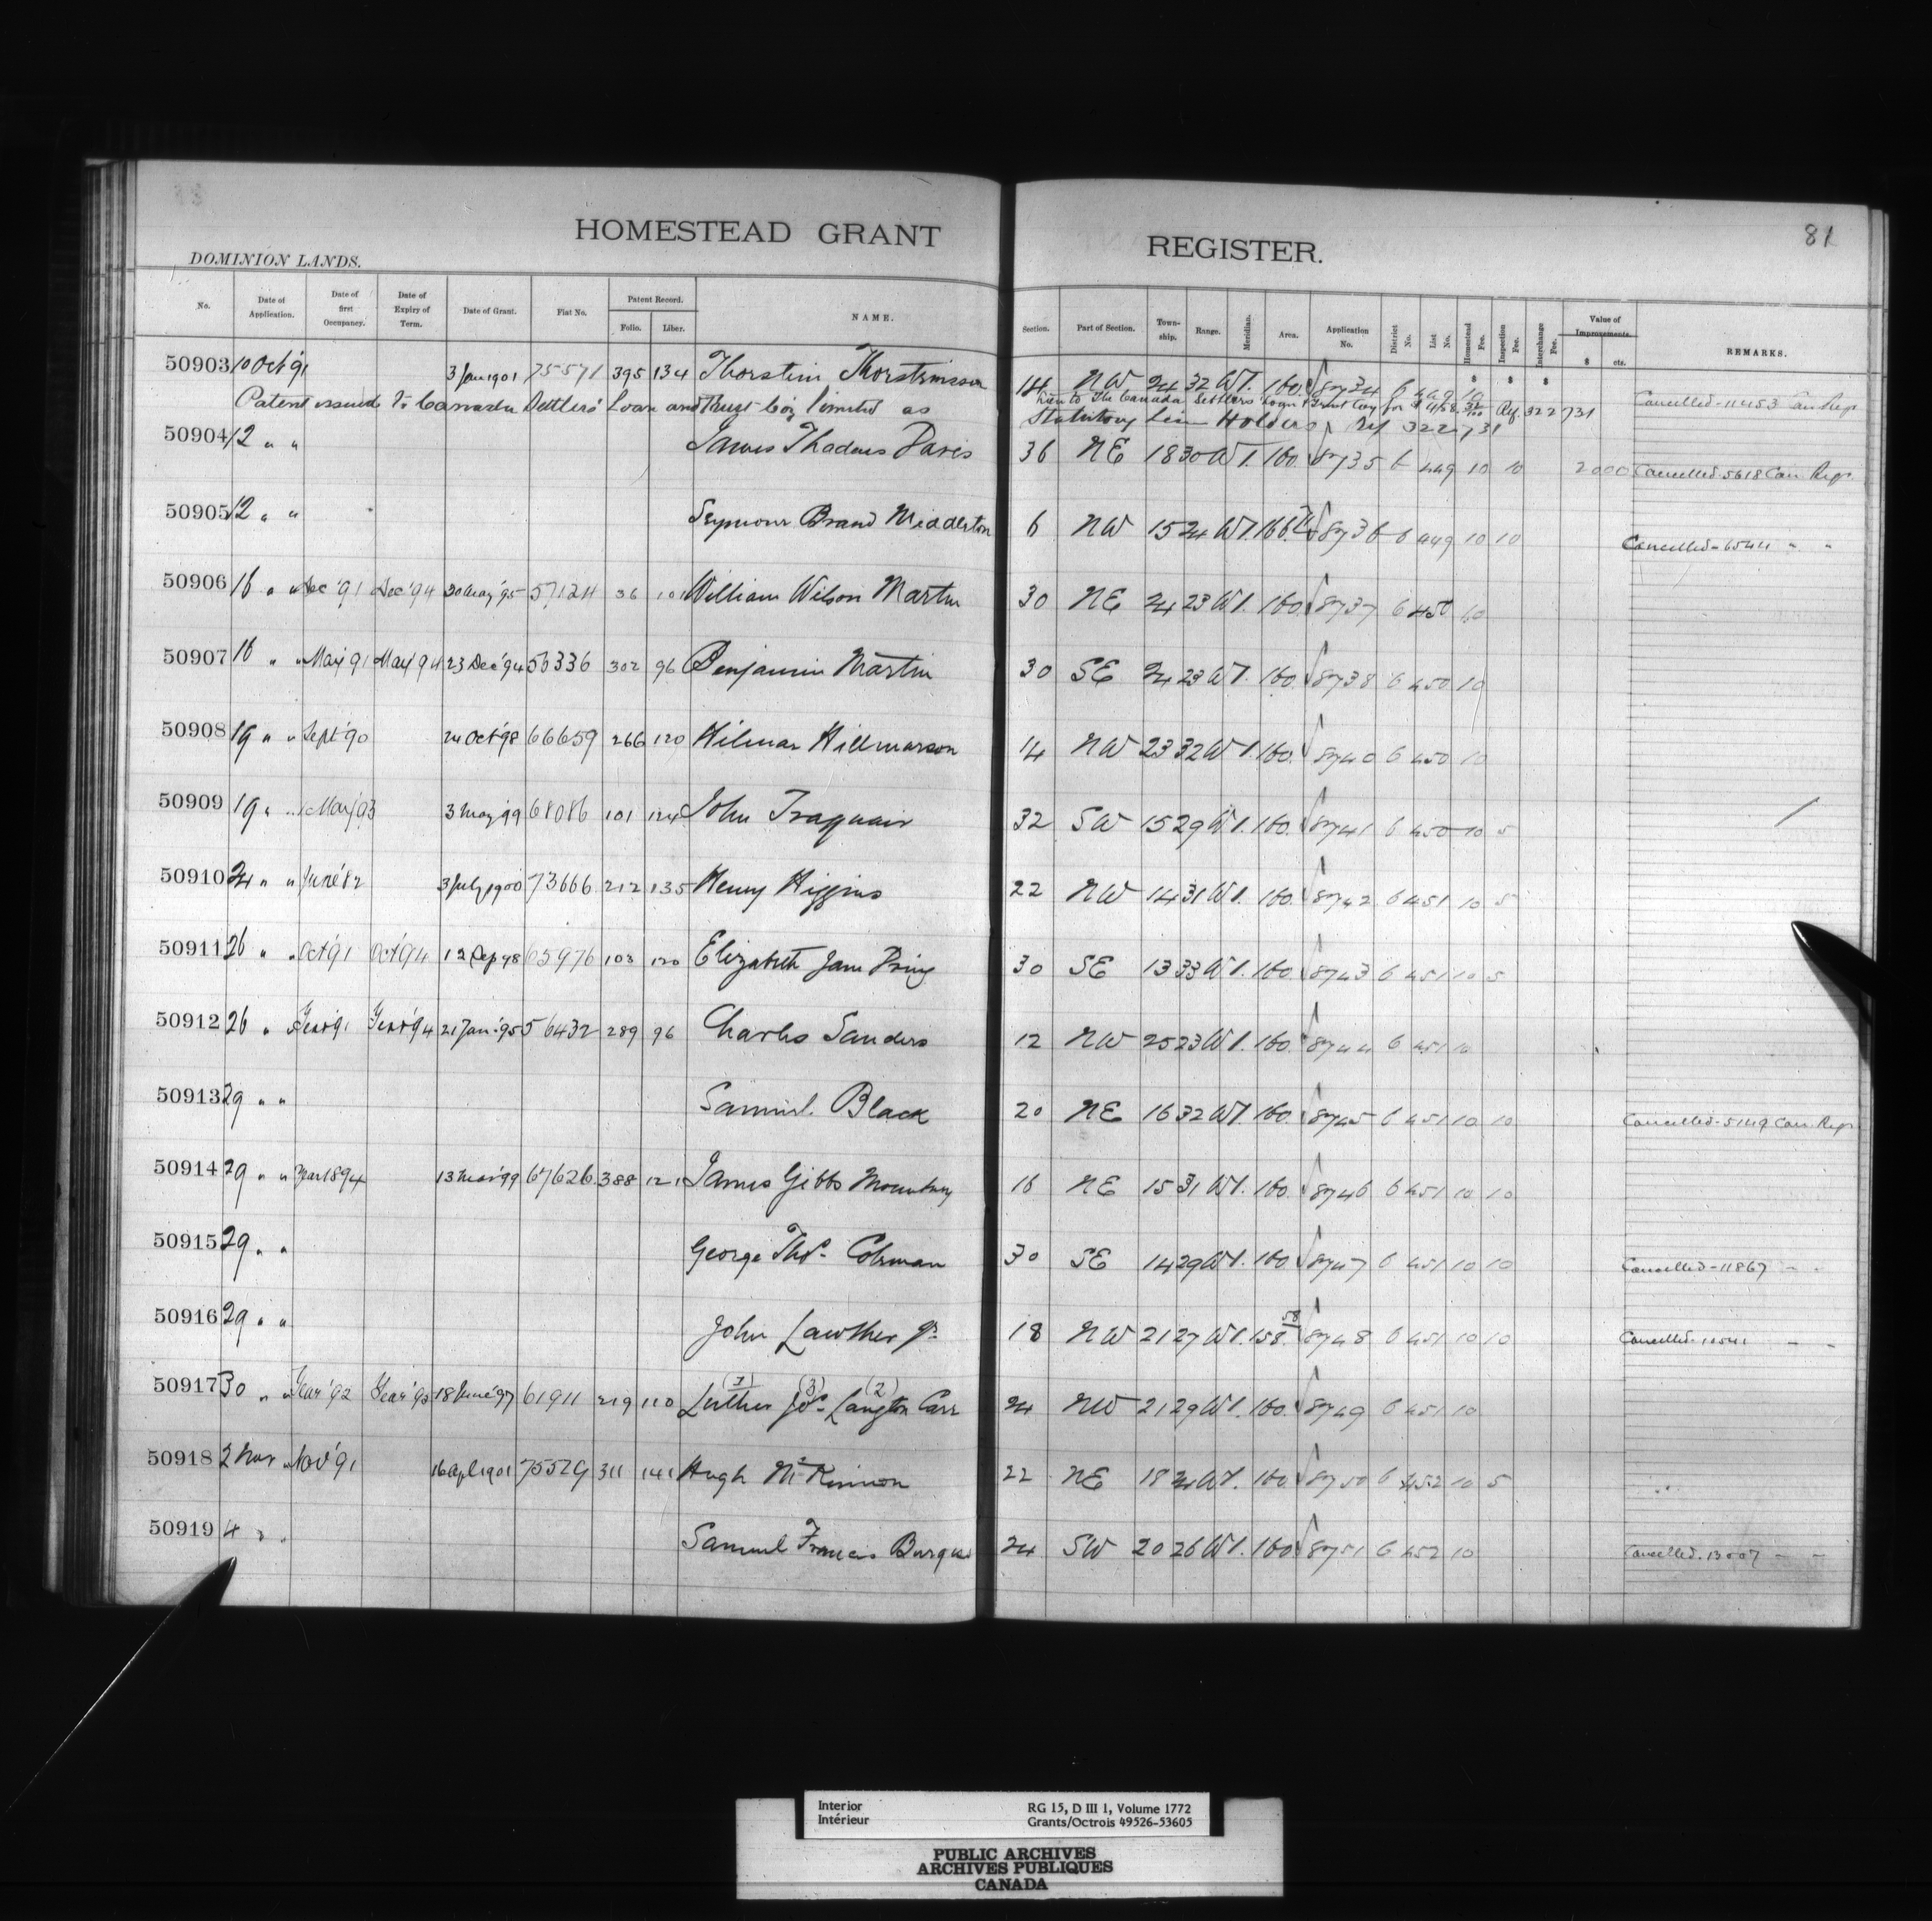 HOMESTEAD GRANT REGISTER.
81
DOMINION LANDS.
No. Date of Application. Date of first Occupancy. Date of Expiry of Term. Date of Grant. Fiat No. Patent Record. Folio. Liber. NAME. Section. Part of Section. Town-ship. Range. Meridian. Area. Application No. District No. List No. Homestead Fee. Inspection Fee. Interchange Fee. Value of Improvements. $ cts. REMARKS.
50903 10 Oct '91 3 Jan 1901 75571 395 134 Thorstein Thorsteinsson 14 NW 24 32 W1. 160. 8734 6 449 10 Cancelled-11453 Can Regr
Patent issued to Canada Settlers' Loan and Trust Coy limited as
Lien to The Canada Settlers Loan & Trust Coy for $ Ref. 322731
Statutory Lien Holders Ref 322731
50904 12 " " James Thadeus Davis 36 NE 18 30 W1. 160. 8735 6 449 10 10 2000 Cancelled-5618 Can Regr
50905 12 " " Seymour Brand Middleton 6 NW 15 24 W1. 166. 8736 6 449 10 10 Cancelled-6544 " "
50906 16 " " Dec '91 Dec '94 30 May '95 57124 36 101 William Wilson Martin 30 NE 24 23 W1. 160. 8737 6 450 10
50907 16 " " May '91 May '94 23 Dec '94 56336 302 96 Benjamin Martin 30 SE 24 23 W1. 160. 8738 6 450 10
50908 19 " " Sept '90 24 Oct '98 66659 266 120 Hilmar Hillmarson 14 NW 23 32 W1. 160. 8740 6 450 10
50909 19 " " May '93 3 May '99 68086 101 124 John Traquair 32 SW 15 29 W1. 160. 8741 6 450 10 5
50910 24 " " June '82 3 July 1900 73666 212 135 Henry Higgins 22 NW 14 31 W1. 160. 8742 6 451 10 5
50911 26 " " Oct '91 Oct '94 12 Sep 98 65976 103 120 Elizabeth Jane Pring 30 SE 13 33 W1. 160. 8743 6 451 10 5
50912 26 " " Year '91 Year '94 21 Jan '95 56432 289 96 Charles Sanders 12 NW 25 23 W1. 160. 8744 6 451 10
50913 29 " " Samuel Black 20 NE 16 32 W1. 160. 8745 6 451 10 10 Cancelled-5149 Can Regr
50914 29 " " Year 1894 13 Mar '99 67626 388 121 James Gibbs Mountney 16 NE 15 31 W1. 160. 8746 6 451 10 10
50915 29 " " George Thos. Coleman 30 SE 14 29 W1. 160. 8747 6 451 10 10 Cancelled-11867 " "
50916 29 " " John Lawther Jr. 18 NW 21 27 W1. 158.58 8748 6 451 10 10 Cancelled " "
50917 30 " " Year '92 Year '95 18 June '97 61911 219 110 Luther Jos. Langton Carr (1) (3) (2) 24 NW 21 29 W1. 160. 8749 6 451 10
50918 2 Nov " Nov '91 16 Apl 1901 75529 311 141 Hugh McKinnon 22 NE 18 24 W1. 160. 8750 6 452 10 5
50919 4 " " Samuel Francis 24 SW 20 26 W1. 160. 8751 6 452 10 Cancelled-13007 " "
Interior RG 15, D III 1, Volume 1772
Intérieur Grants/Octrois 49526-53605
PUBLIC ARCHIVES
ARCHIVES PUBLIQUES
CANADA